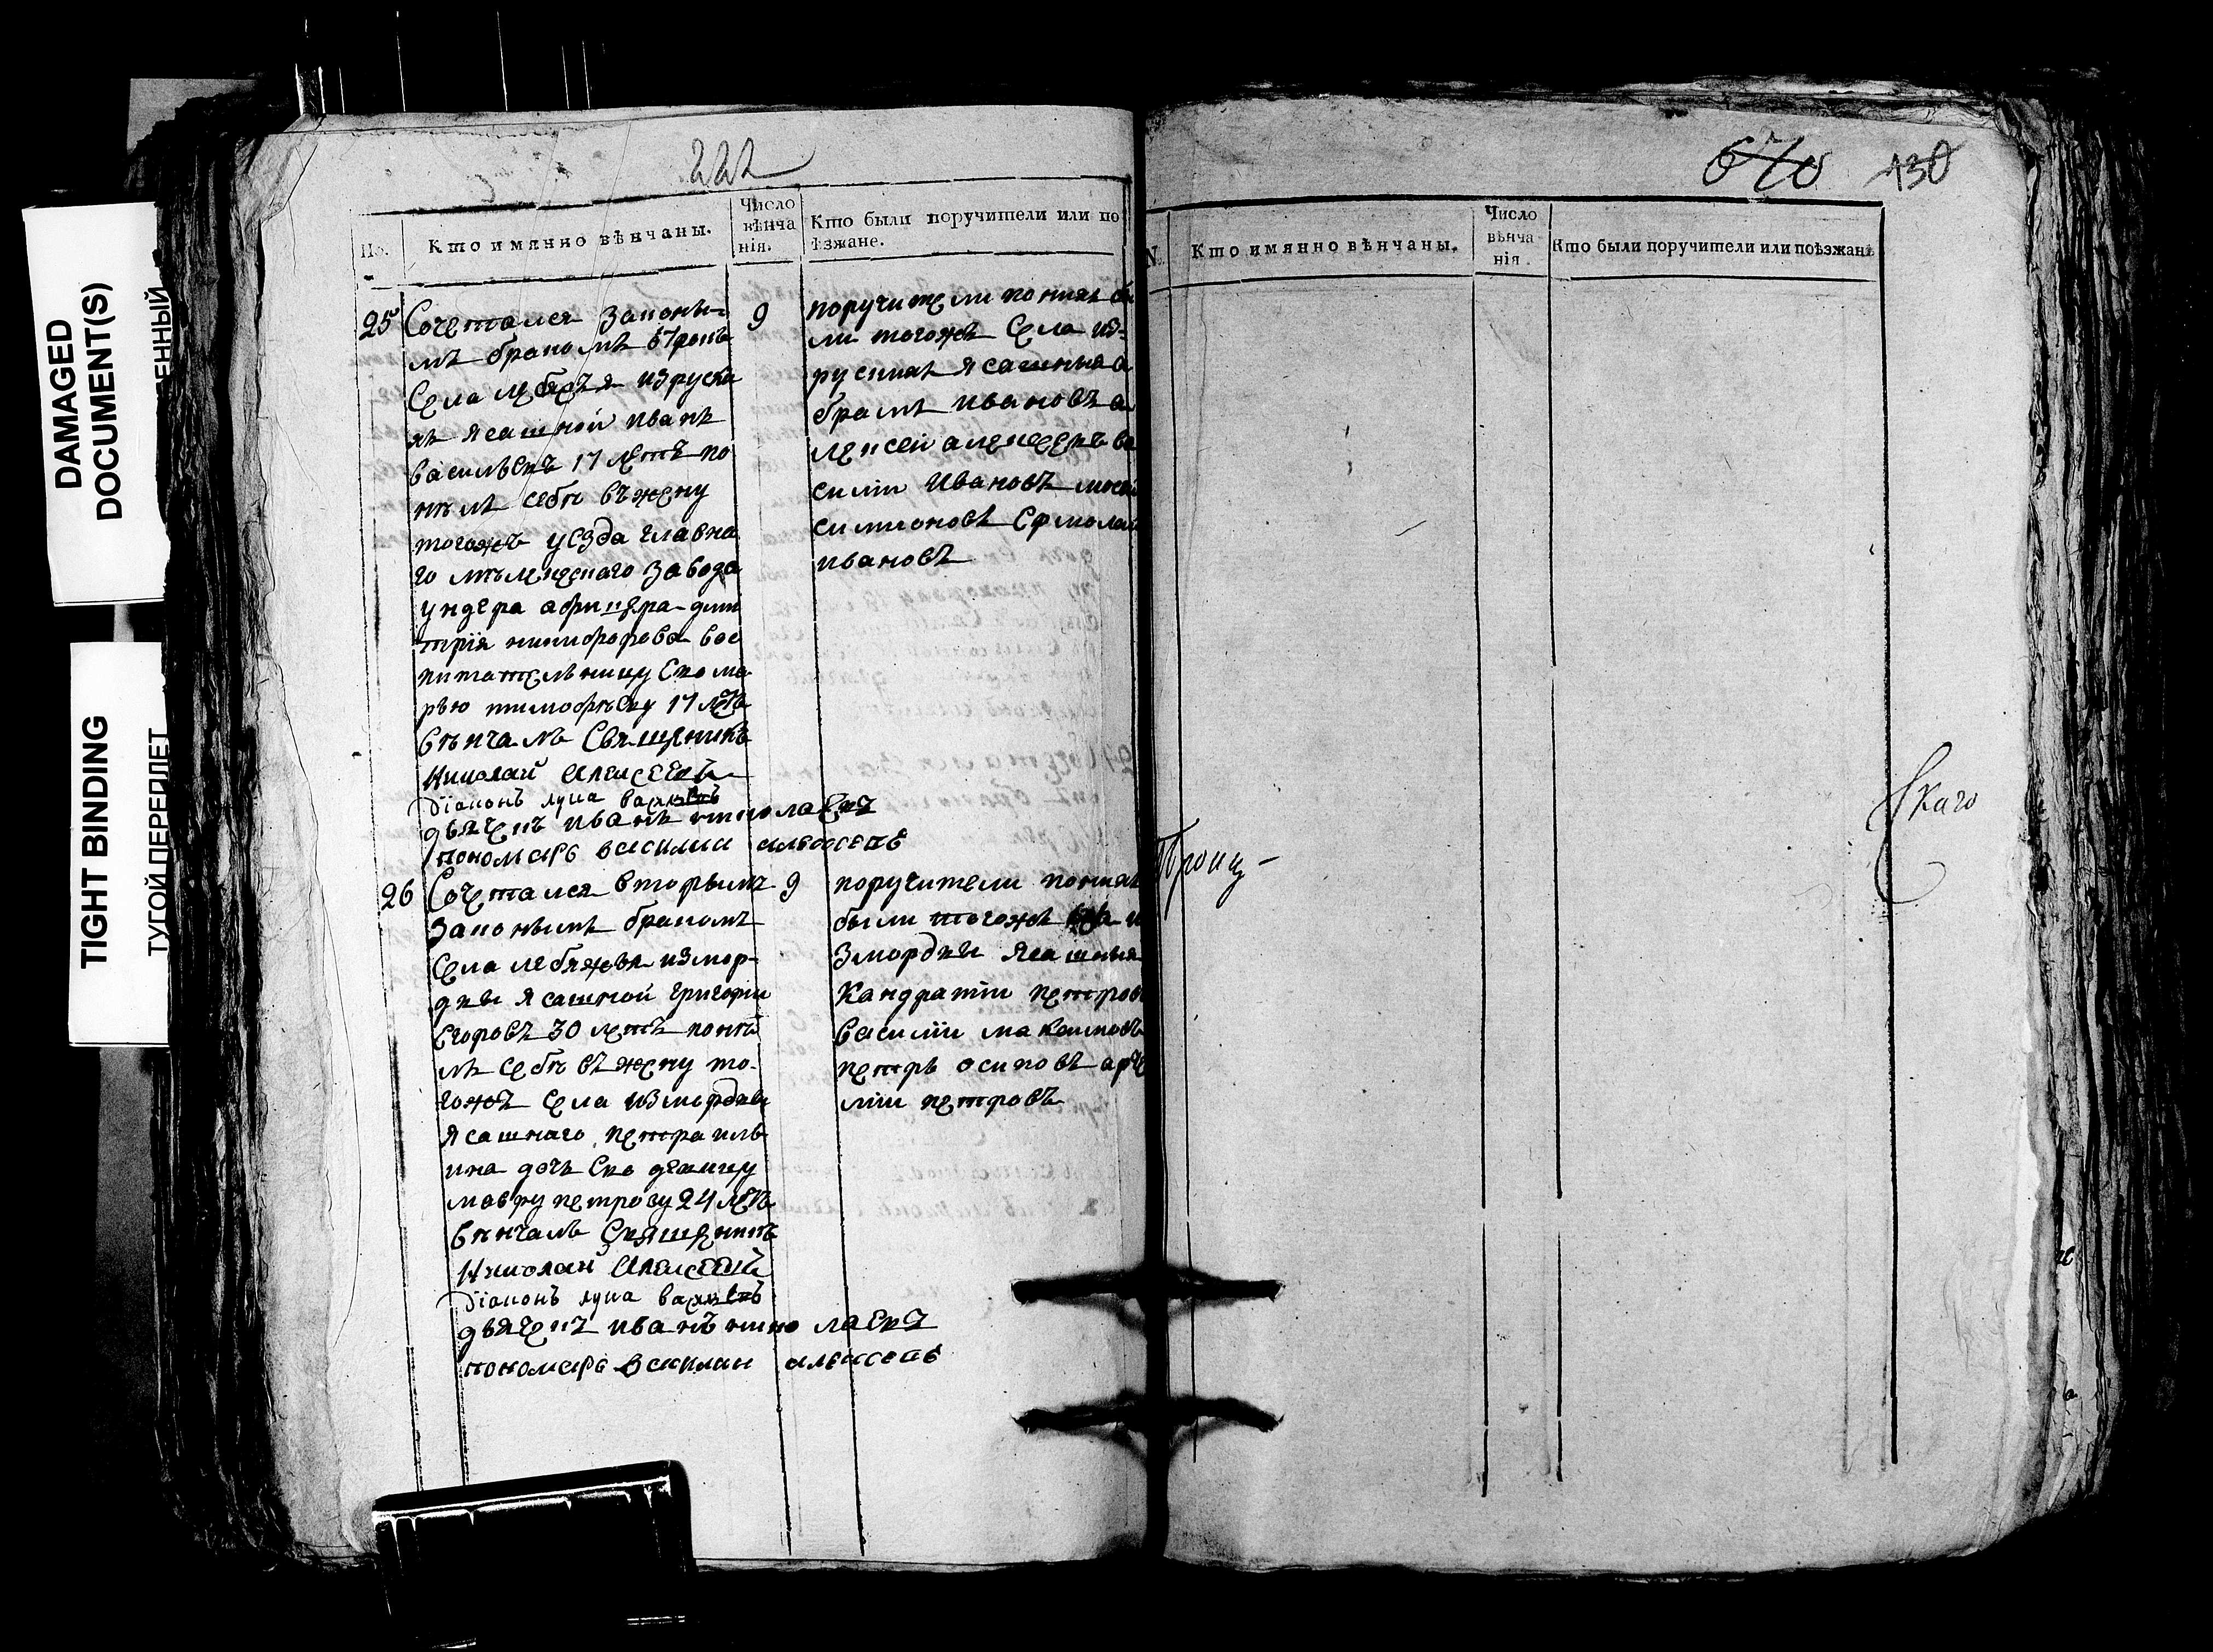 DAMAGED
DOCUMENT(S)
TIGHT BINDING
ТУГОЙ ПЕРЕПЛЕТ
222
Но.
Кто имянно вѣнчаны.
Число
вѣнча
нія.
Кто были поручители или по
ѣзжане.
25
Сочетался законы-
мъ бракомъ
Села из руска
хъ ясашной иванъ
васильевъ 17 летъ по
нялъ себѣ въ жену
тогожъ уезда главна
го завода
ундера афицера дми
трія никифорова вос
питательницу ево ма
рью тимофѣеву 17 летъ
вѣнчалъ Священникъ
Николай Алексеевъ
Діаконъ лука
дьячекъ иванъ николаевъ
пономарь василии алексеевъ
9
поручители по нихъ бы
ли тогожъ Села из-
рускихъ ясашныя а
брамъ ивановъ а
лексей алексеевъ ва
силии Ивановъ
симионовъ Ермолаи
ивановъ
26
Сочетался вторымъ
законымъ бракомъ
Села лебяжья из мор-
двы ясашной григории
Егоровъ 30 летъ поня
лъ себѣ въ жену то-
гожъ села из мордвы
ясашнаго петра иль
ина дочь ево девицу
мавру петрову 24 летъ
вѣнчалъ Священникъ
Николай Алексеевъ
Діаконъ лука
дьячекъ иванъ николаевъ
пономарь василии алексеевъ
9
поручители по нихъ
были тогожъ села и
змордвы ясашныя
Кандратии петровъ
василии макси мовъ
петръ осиповъ арте
мии петровъ
130
N.
Кто имянно вѣнчаны.
Число
вѣнча
нія.
Кто были поручители или поѣзжанѣ
Троиц-
скаго